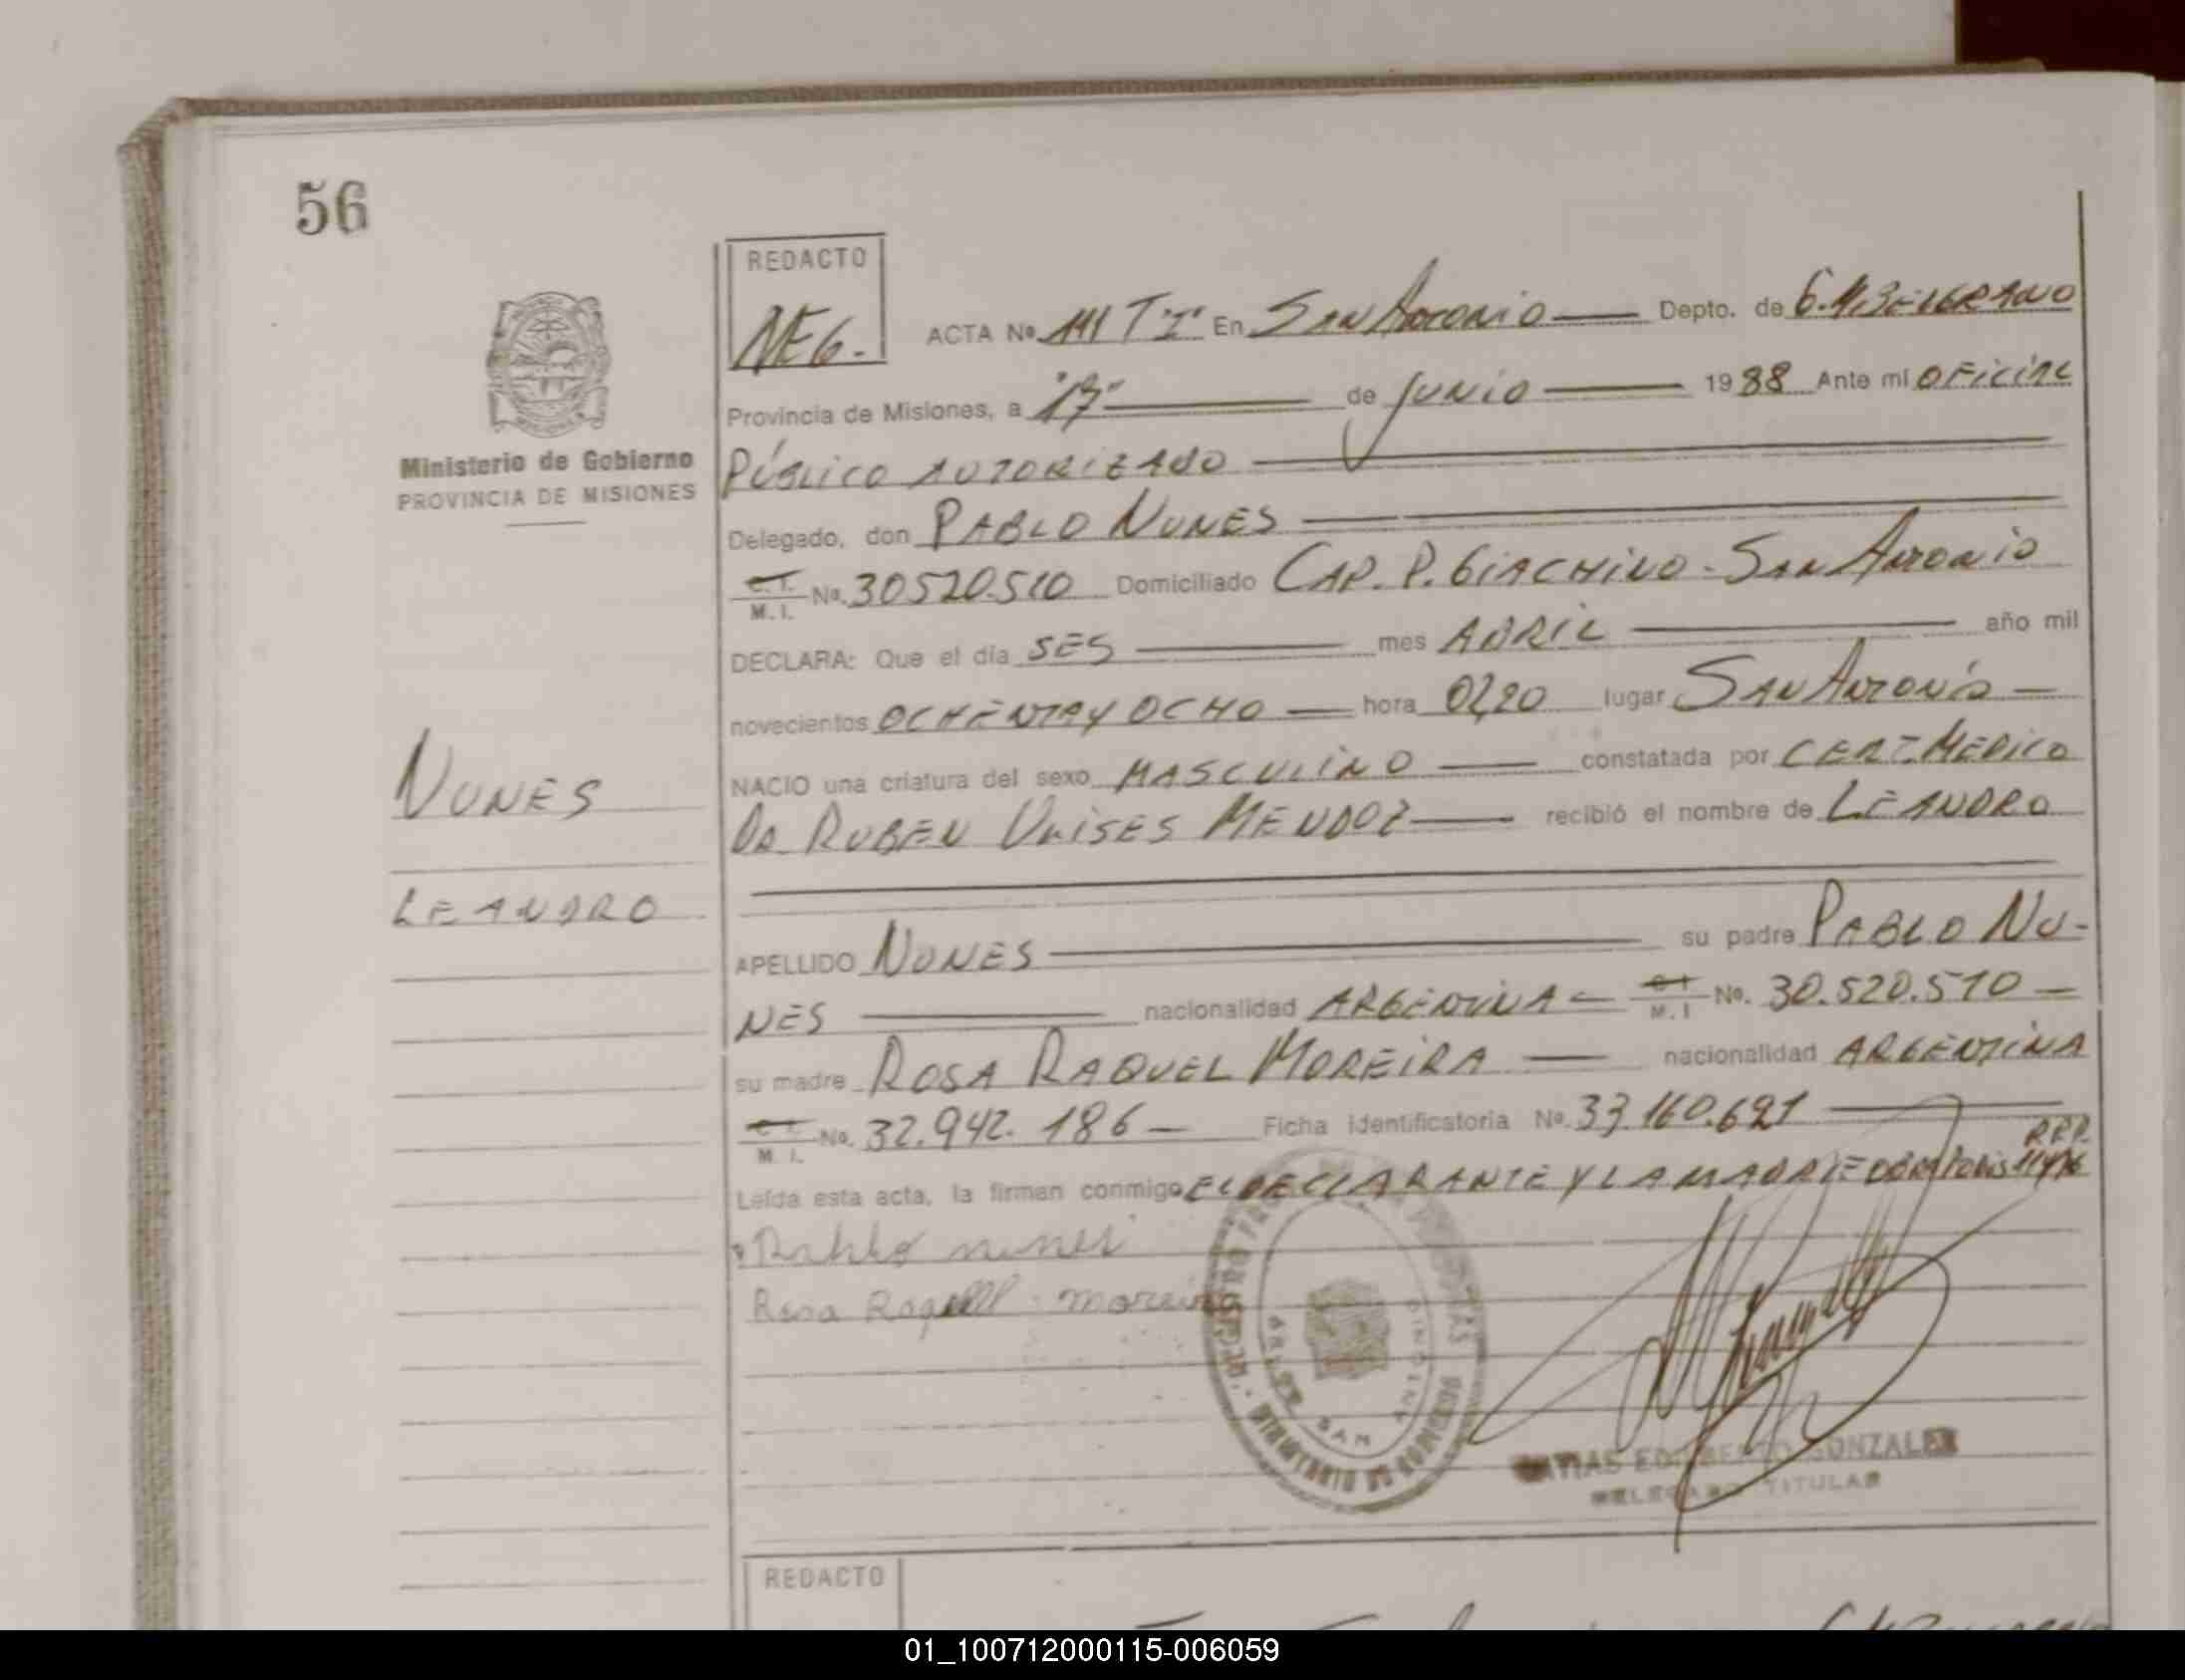 56
REDACTO
NEG.-
ACTA No. 111 T "I" En San Antonio Depto. de G. M. BELGRANO
Provincia de Misiones, a "17" de Junio 1988 Ante mí OFICIAL
PÚBLICO AUTORIZADO
Ministerio de Gobierno
PROVINCIA DE MISIONES
Delegado, don PABLO NUNES
C.I. M. I. No. 30520.510 Domiciliado CAP. P. GIACHINO - SAN ANTONIO
DECLARA: Que el día SES mes ABRIL año mil
novecientos OCHENTA Y OCHO hora 02,20 lugar SAN ANTONIO
NACIO una criatura del sexo MASCULINO constatada por CERT. MEDICO
DR RUBEN ULISES MENDOZ recibió el nombre de LEANDRO
NUNES
LEANDRO
APELLIDO NUNES su padre PABLO NU-
NES nacionalidad ARGENTINA M. I No. 30.520.510
su madre ROSA RAQUEL MOREIRA nacionalidad ARGENTINA
C.I. M. I. No. 32.942.186 Ficha identificatoria No. 33.160.621
Leída esta acta, la firman conmigo EL DECLARANTE Y LA MADRE
Pablo nunes
Rosa Raquell moreira
SAN ANTONIO
GONZALEZ
DELEGADO TITULAR
REDACTO
01_100712000115-006059